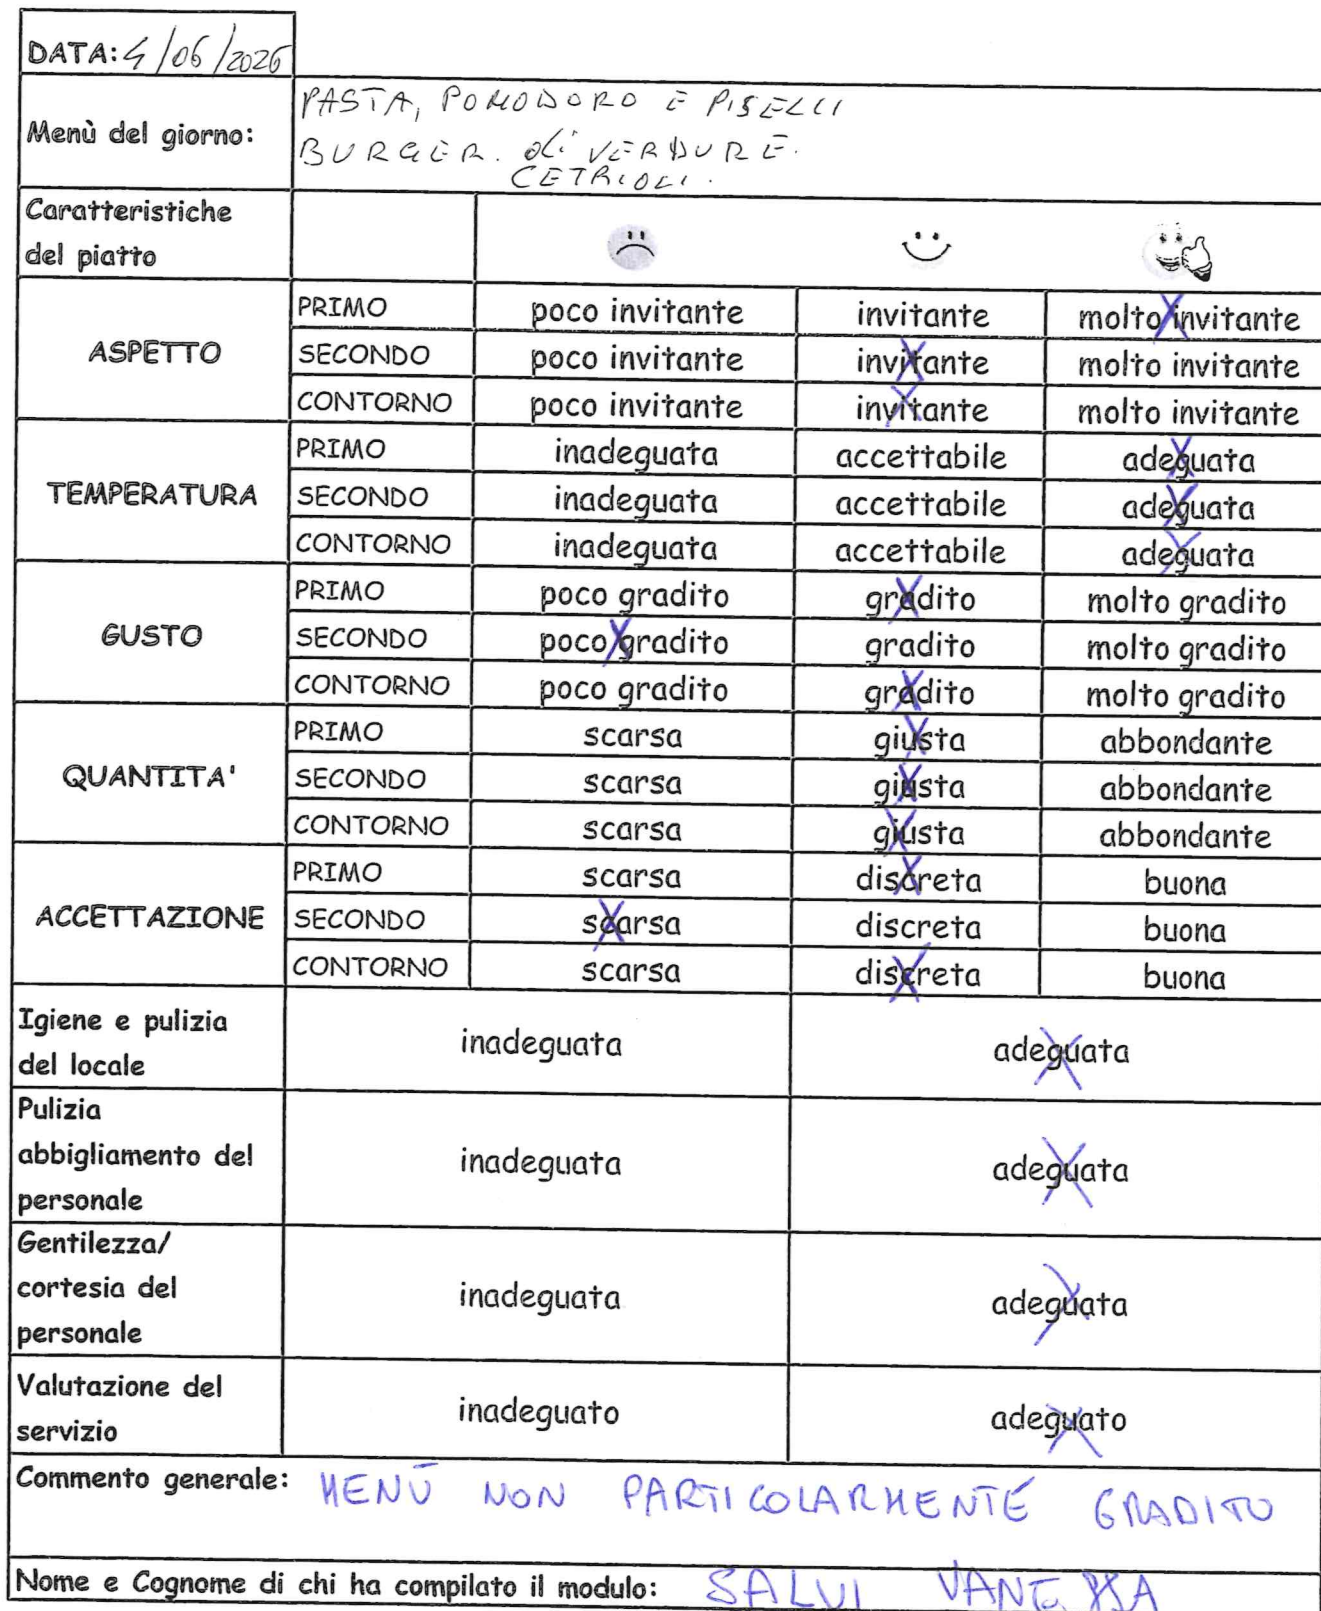 DATA: 4/06/2026
Menù del giorno: PASTA, POMODORO E PISELLI
BURGER. di VERDURE.
CETRIOLI.
Caratteristiche
del piatto
ASPETTO
PRIMO poco invitante invitante molto invitante
SECONDO poco invitante invitante molto invitante
CONTORNO poco invitante invitante molto invitante
TEMPERATURA
PRIMO inadeguata accettabile adeguata
SECONDO inadeguata accettabile adeguata
CONTORNO inadeguata accettabile adeguata
GUSTO
PRIMO poco gradito gradito molto gradito
SECONDO poco gradito gradito molto gradito
CONTORNO poco gradito gradito molto gradito
QUANTITA'
PRIMO scarsa giusta abbondante
SECONDO scarsa giusta abbondante
CONTORNO scarsa giusta abbondante
ACCETTAZIONE
PRIMO scarsa discreta buona
SECONDO scarsa discreta buona
CONTORNO scarsa discreta buona
Igiene e pulizia
del locale
inadeguata adeguata
Pulizia
abbigliamento del
personale
inadeguata adeguata
Gentilezza/
cortesia del
personale
inadeguata adeguata
Valutazione del
servizio
inadeguato adeguato
Commento generale: MENÙ NON PARTICOLARMENTE GRADITO
Nome e Cognome di chi ha compilato il modulo: SALVI VANESSA